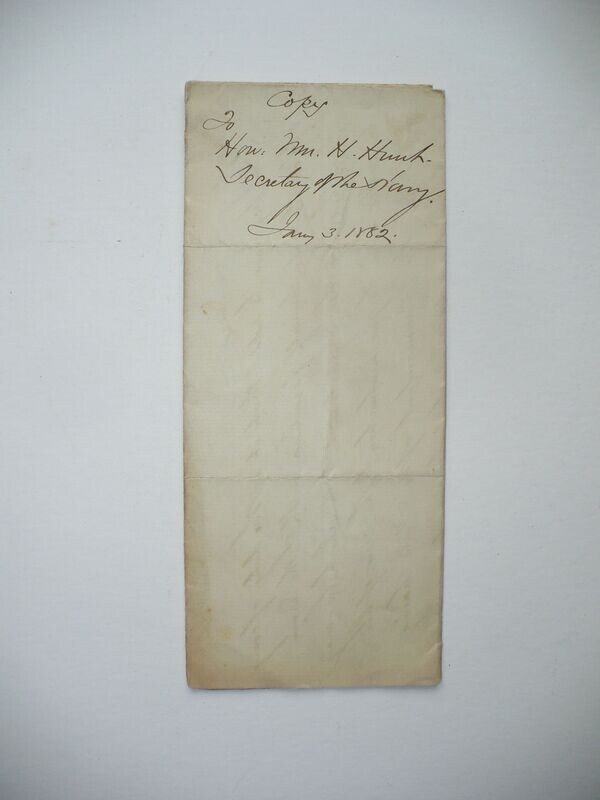 Copy
To
Hon: Wm. H. Hunt.
Secretary of the Navy.
Jany 3. 1882.